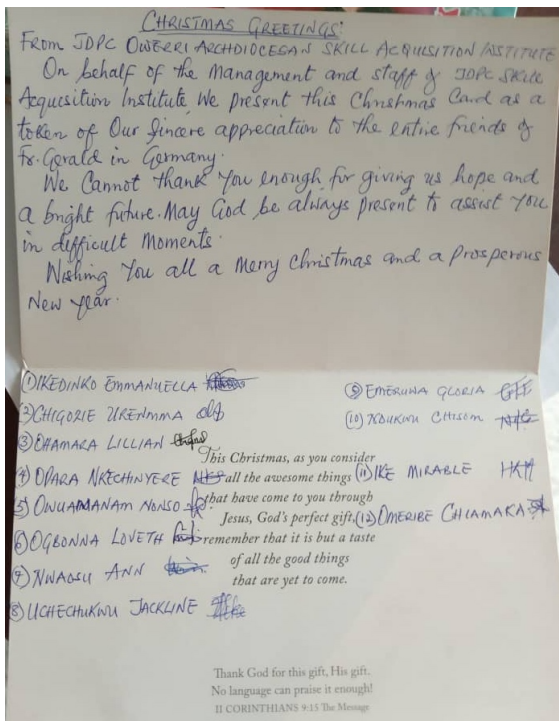 CHRISTMAS GREETINGS:
FROM JDPC OWERRI ARCHDIOCESAN SKILL ACQUISITION INSTITUTE
On behalf of the Management and staff of JDPC Skill
Acquisition Institute, We present this Christmas Card as a
token of Our Sincere appreciation to the entire friends of
Fr. Gerald in Germany.
We Cannot thank You enough for giving us hope and
a bright future. May God be always present to assist You
in difficult Moments.
Wishing You all a Merry Christmas and a Prosperous
New Year.
(1) IKEDINKO EMMANUELLA
(2) CHIGOZIE URENMMA
(3) OHAMARA LILLIAN
(4) OPARA NKECHINYERE
(5) ONUAMANAM NONSO
(6) OGBONNA LOVETH
(7) NWAOSU ANN
(8) UCHECHUKWU JACKLINE
(9) EMERUWA GLORIA
(10) NDUKWU CHISOM
(11) IKE MIRABLE
(12) OMERIBE CHIAMAKA
This Christmas, as you consider
all the awesome things
that have come to you through
Jesus, God's perfect gift,
remember that it is but a taste
of all the good things
that are yet to come.
Thank God for this gift, His gift.
No language can praise it enough!
II CORINTHIANS 9:15 The Message